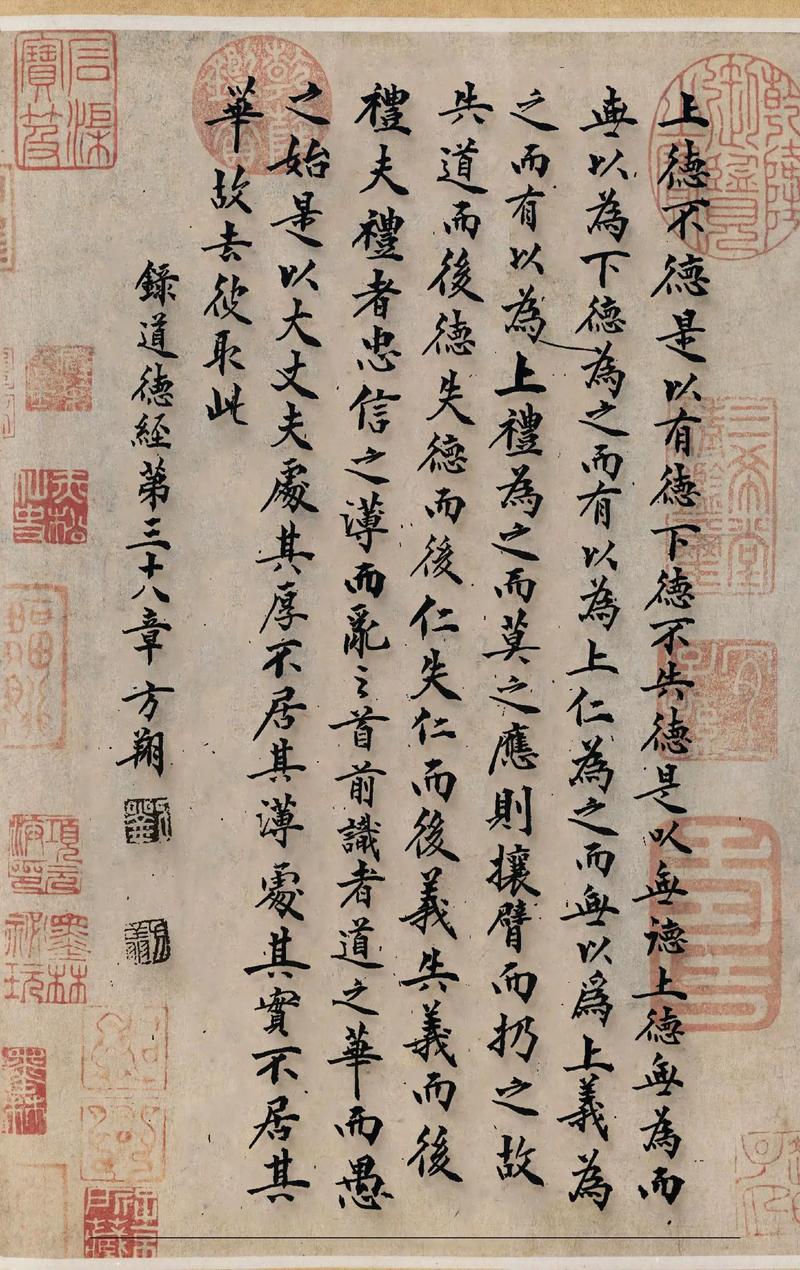 上德不德是以有德下德不失德是以無德上德無為而
無以為下德為之而有以為上仁為之而無以爲上義為
之而有以為上禮為之而莫之應則攘臂而扔之故
失道而後德失德而後仁失仁而後義失義而後
禮夫禮者忠信之薄而亂之首前識者道之華而愚
之始是以大丈夫處其厚不居其薄處其實不居其
華故去彼取此
錄道德經第三十八章方翔
三希堂精鑑璽
墨林祕玩